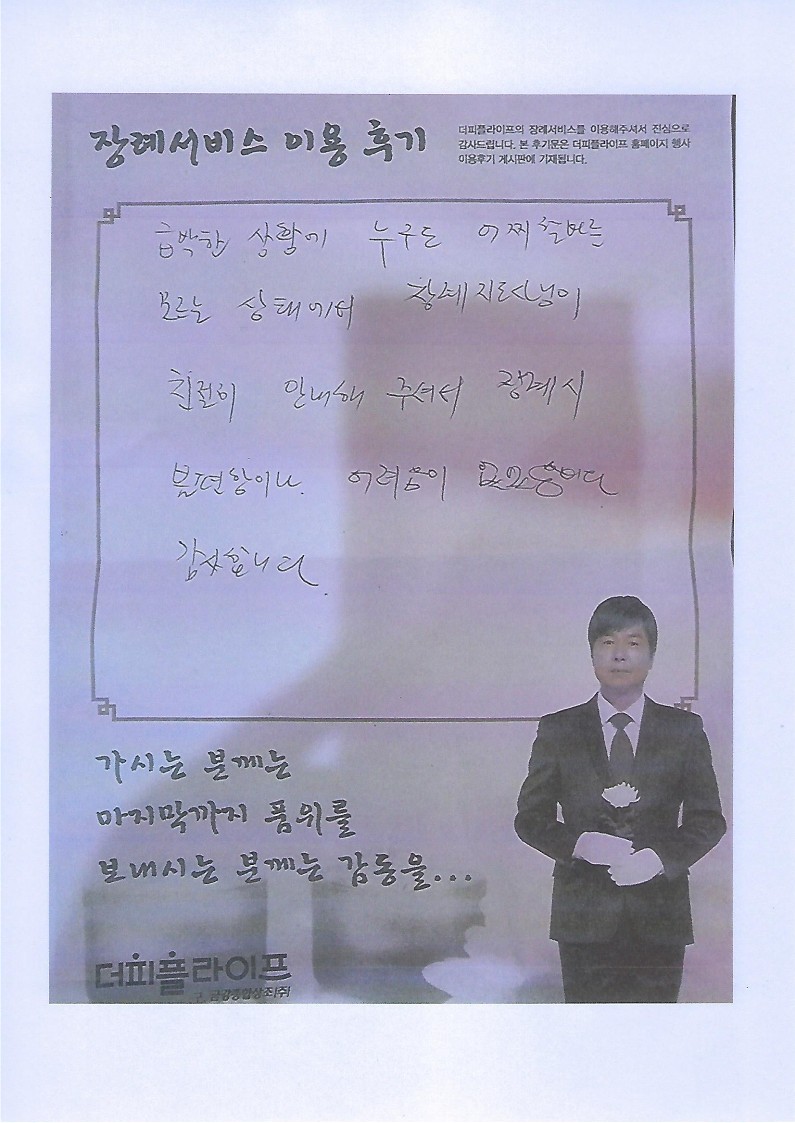 장례서비스 이용 후기
더피플라이프의 장례서비스를 이용해주셔서 진심으로
감사드립니다. 본 후기문은 더피플라이프 홈페이지 행사
이용후기 게시판에 기재됩니다.
급박한 상황에 누구도 어찌할바를
모르는 상태에서 장례지도사님이
친절히 안내해 주셔서 장례시
불편함이나 어려움이
감사합니다
가시는 분께는
마지막까지 품위를
보내시는 분께는 감동을...
더피플라이프
구. 금강종합상조(주)